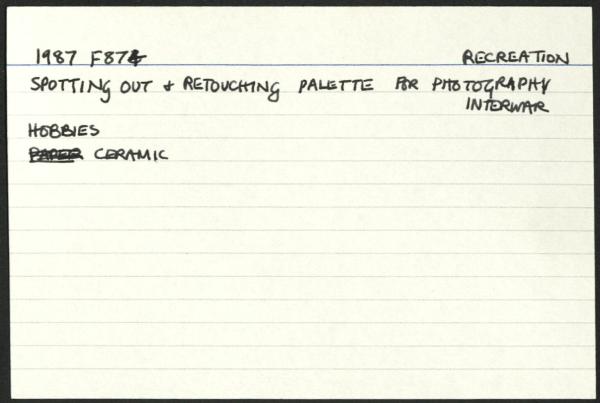 1987 F874 RECREATION
SPOTTING OUT + RETOUCHING PALETTE FOR PHOTOGRAPHY
INTERWAR
HOBBIES
PAPER CERAMIC